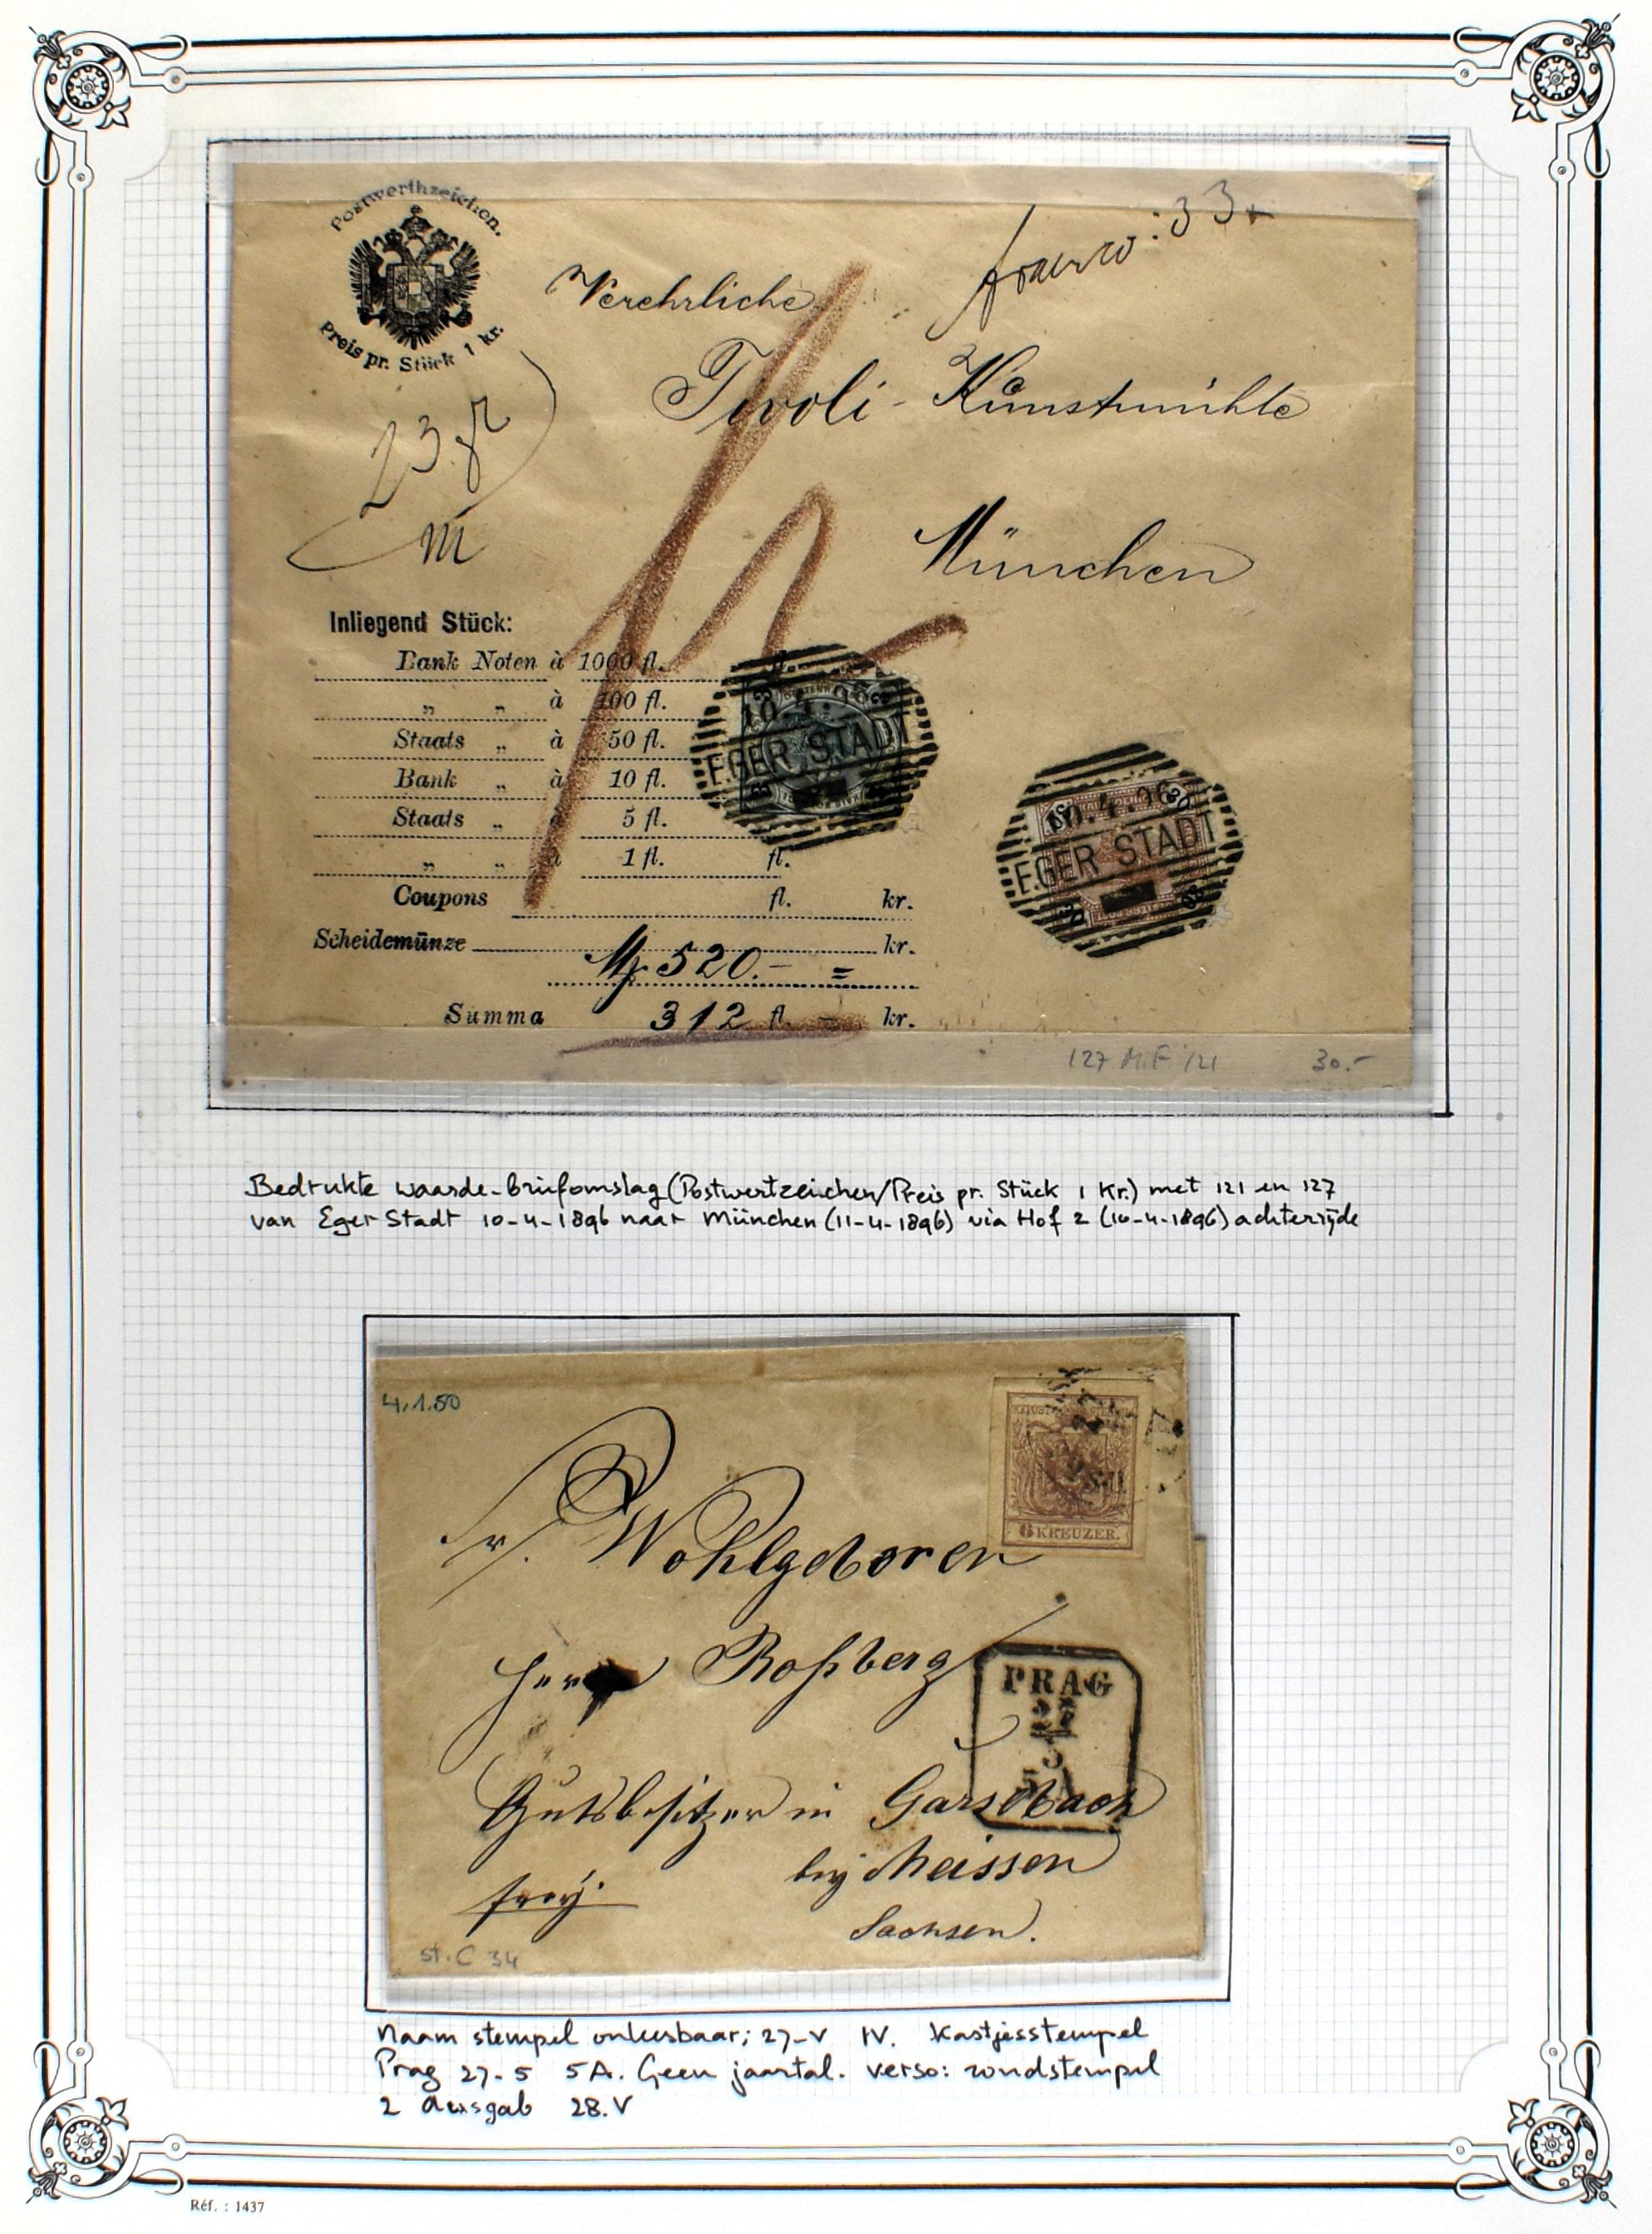 Postwerthzeichen.
Preis pr. Stück 1 kr.
franco: 33
Verehrliche
Tivoli - Kunstmühle
München
Inliegend Stück:
Bank Noten à 1000 fl. fl.
„ „ à 100 fl.
Staats „ à 50 fl.
Bank „ à 10 fl.
Staats „ à 5 fl.
„ „ à 1 fl. fl.
Coupons fl. kr.
Scheidemünze kr.
520.- =
Summa 312 fl. - kr.
EGER STADT
10.4.96
EGER STADT
127 M.F 121 30.-
Bedrukte waarde-briefomslag (Postwertzeichen/Preis pr. Stück 1 Kr.) met 121 en 127
van Eger Stadt 10-4-1896 naar München (11-4-1896) via Hof 2 (10-4-1896) achterzijde
4.1.50
6 KREUZER.
Wohlgeboren
Roßberg
PRAG
27
5
Gutsbesitzer in Garsebach
bey Meissen
Sachsen.
frey.
st. C 34
Naam stempel onleesbaar; 27-V IV. Kastjesstempel
Prag 27-5 5A. Geen jaartal. verso: rondstempel
2 Ausgab 28.V
Réf. : 1437